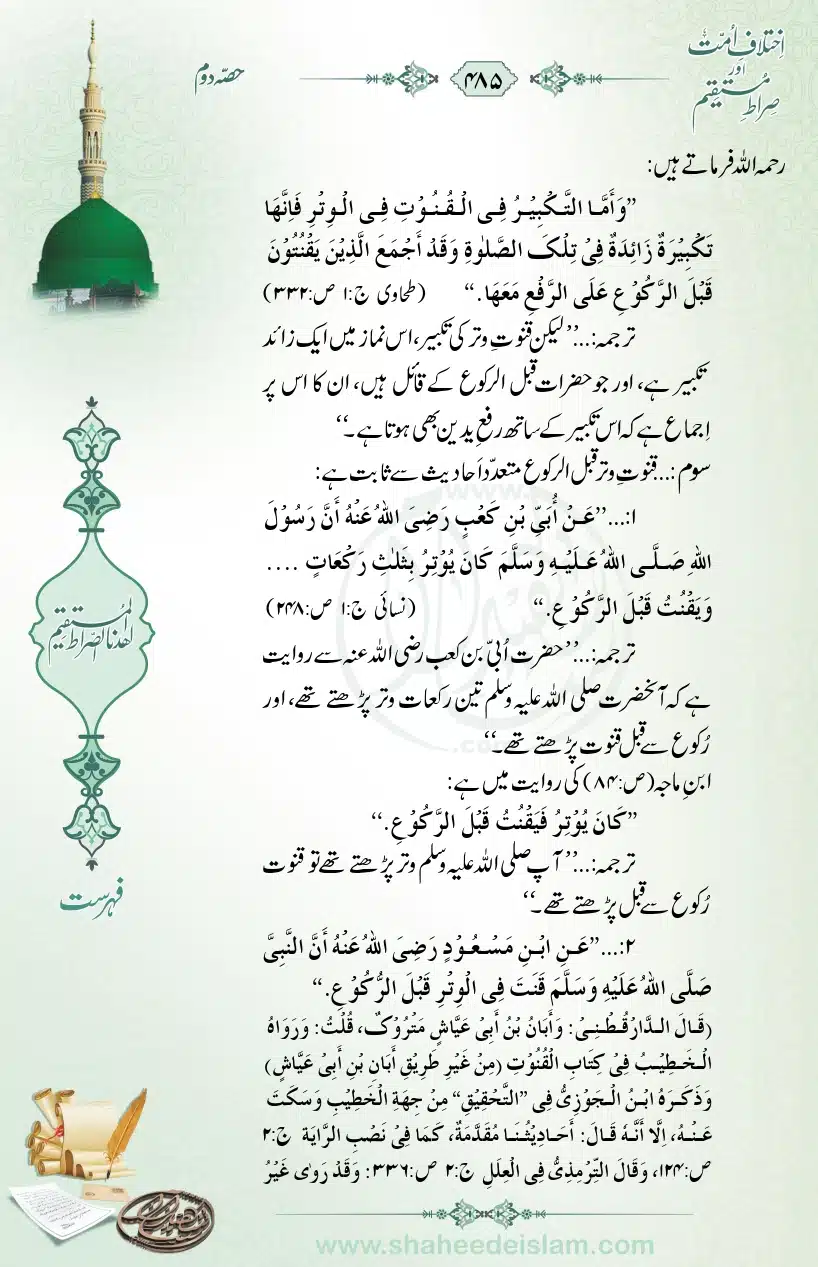 اِختلافِ اُمّت
اور
صِراطِ مُستقیم
۴۸۵
حصّہ دوم
رحمہ اللہ فرماتے ہیں:
”وَأَمَّا التَّكْبِيْرُ فِى الْقُنُوْتِ فِى الْوِتْرِ فَاِنَّهَا
تَكْبِيْرَةٌ زَائِدَةٌ فِىْ تِلْكَ الصَّلٰوةِ وَقَدْ أَجْمَعَ الَّذِيْنَ يَقْنُتُوْنَ
قَبْلَ الرُّكُوْعِ عَلَى الرَّفْعِ مَعَهَا.“ (طحاوی ج:۱ ص:۳۳۲)
ترجمہ:...’’لیکن قنوتِ وتر کی تکبیر، اس نماز میں ایک زائد
تکبیر ہے، اور جو حضرات قبل الرکوع کے قائل ہیں، ان کا اس پر
اِجماع ہے کہ اس تکبیر کے ساتھ رفعِ یدین بھی ہوتا ہے۔‘‘
سوم:...قنوتِ وتر قبل الرکوع متعدّد اَحادیث سے ثابت ہے:
۱:...”عَنْ أُبَيِّ بْنِ كَعْبٍ رَضِىَ اللهُ عَنْهُ أَنَّ رَسُوْلَ
اللهِ صَلَّى اللهُ عَلَيْهِ وَسَلَّمَ كَانَ يُوْتِرُ بِثَلٰثِ رَكْعَاتٍ ....
وَيَقْنُتُ قَبْلَ الرَّكُوْعِ.“ (نسائی ج:۱ ص:۲۴۸)
ترجمہ:...’’حضرت اُبیّ بن کعب رضی اللہ عنہ سے روایت
ہے کہ آنحضرت صلی اللہ علیہ وسلم تین رکعات وتر پڑھتے تھے، اور
رُکوع سے قبل قنوت پڑھتے تھے۔‘‘
ابنِ ماجہ (ص:۸۴) کی روایت میں ہے:
”كَانَ يُوْتِرُ فَيَقْنُتُ قَبْلَ الرَّكُوْعِ.“
ترجمہ:...’’آپ صلی اللہ علیہ وسلم وتر پڑھتے تھے تو قنوت
رُکوع سے قبل پڑھتے تھے۔‘‘
۲:...”عَنِ ابْنِ مَسْعُوْدٍ رَضِىَ اللهُ عَنْهُ أَنَّ النَّبِىَّ
صَلَّى اللهُ عَلَيْهِ وَسَلَّمَ قَنَتَ فِى الْوِتْرِ قَبْلَ الرُّكُوْعِ.“
(قَالَ الدَّارْقُطْنِىْ: وَأَبَانُ بْنُ أَبِىْ عَيَّاشٍ مَتْرُوْكٌ، قُلْتُ: وَرَوَاهُ
الْخَطِيْبُ فِىْ كِتَابِ الْقُنُوْتِ (مِنْ غَيْرِ طَرِيْقِ أَبَانِ بْنِ أَبِىْ عَيَّاشٍ)
وَذَكَرَهُ ابْنُ الْجَوْزِىُّ فِى ”التَّحْقِيْقِ“ مِنْ جِهَةِ الْخَطِيْبِ وَسَكَتَ
عَنْهُ، اِلَّا أَنَّهٗ قَالَ: أَحَادِيْثُنَا مُقَدَّمَةٌ، كَمَا فِىْ نَصْبِ الرَّايَة ج:۲
ص:۱۲۴، وَقَالَ التِّرْمِذِىُّ فِى الْعِلَلِ ج:۲ ص:۳۳۶: وَقَدْ رَوٰى غَيْرُ
اهدنا الصراط المستقیم
فہرست
www.shaheedeislam.com